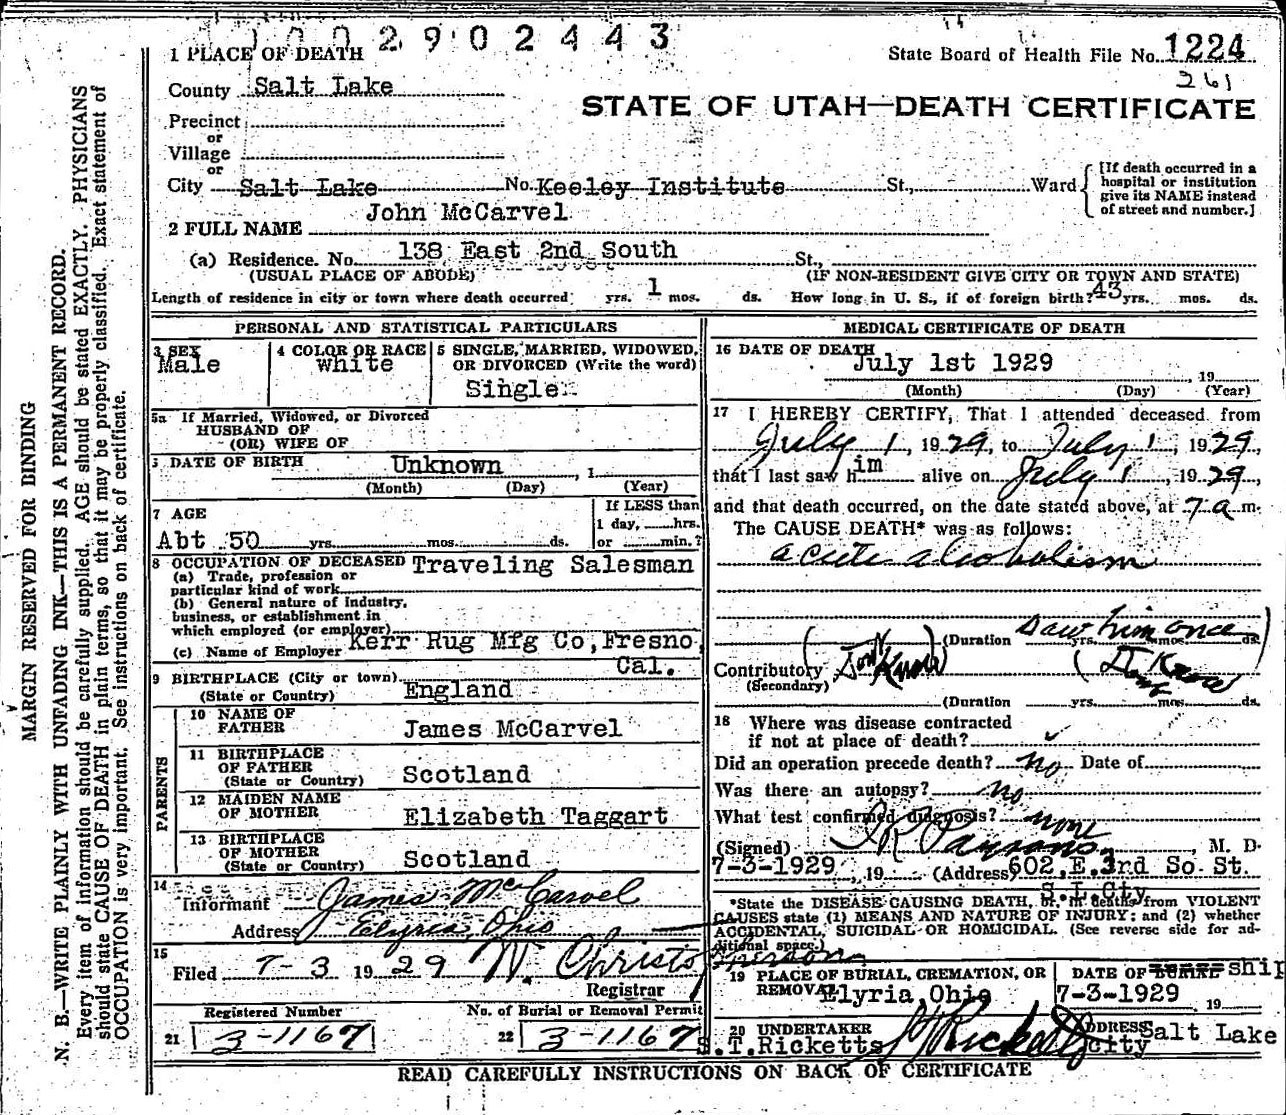 1002902443
1 PLACE OF DEATH
State Board of Health File No. 1224
261
County Salt Lake
STATE OF UTAH—DEATH CERTIFICATE
Precinct
or
Village
or
City Salt Lake No. Keeley Institute St., Ward
[If death occurred in a hospital or institution give its NAME instead of street and number.]
2 FULL NAME John McCarvel
(a) Residence. No. 138 East 2nd South St.,
(USUAL PLACE OF ABODE) (IF NON-RESIDENT GIVE CITY OR TOWN AND STATE)
Length of residence in city or town where death occurred yrs. 1 mos. ds. How long in U. S., if of foreign birth? 43 yrs. mos. ds.
PERSONAL AND STATISTICAL PARTICULARS
3 SEX
Male
4 COLOR OR RACE
White
5 SINGLE, MARRIED, WIDOWED, OR DIVORCED (Write the word)
Single
5a If Married, Widowed, or Divorced
HUSBAND OF
(OR) WIFE OF
DATE OF BIRTH Unknown , 1
(Month) (Day) (Year)
7 AGE
If LESS than
1 day, hrs.
or min.?
Abt 50 yrs. mos. ds.
8 OCCUPATION OF DECEASED Traveling Salesman
(a) Trade, profession or
particular kind of work
(b) General nature of Industry,
business, or establishment in
which employed (or employer)
(c) Name of Employer Kerr Rug Mfg Co, Fresno,
Cal.
9 BIRTHPLACE (City or town)
(State or Country) England
PARENTS
10 NAME OF
FATHER James McCarvel
11 BIRTHPLACE
OF FATHER
(State or Country) Scotland
12 MAIDEN NAME
OF MOTHER Elizabeth Taggart
13 BIRTHPLACE
OF MOTHER
(State or Country) Scotland
14
Informant James McCarvel
Address Elyria, Ohio
15
Filed 7-3 1929 W. Christopherson
Registrar
Registered Number No. of Burial or Removal Permit
21 3-1167 22 3-1167
MEDICAL CERTIFICATE OF DEATH
16 DATE OF DEATH
July 1st 1929 , 19
(Month) (Day) (Year)
17 I HEREBY CERTIFY, That I attended deceased from
July 1, 1929, to July 1, 1929,
that I last saw him alive on July 1, 1929,
and that death occurred, on the date stated above, at 7 a m.
The CAUSE DEATH* was as follows:
acute alcoholism
(Duration yrs. mos. ds. saw him once)
Contributory (Don't Know) (Don't Know)
(Secondary)
(Duration yrs. mos. ds.
18 Where was disease contracted
if not at place of death?
Did an operation precede death? no Date of
Was there an autopsy? no
What test confirmed diagnosis? none
(Signed) Parsons, M. D.
7-3-1929, 19 (Address) 602, E. 3rd So. St.
S.L. Cty
*State the DISEASE CAUSING DEATH, or, in deaths from VIOLENT
CAUSES state (1) MEANS AND NATURE OF INJURY; and (2) whether
ACCIDENTAL, SUICIDAL OR HOMICIDAL. (See reverse side for ad-
ditional space.)
19 PLACE OF BURIAL, CREMATION, OR
REMOVAL Elyria, Ohio
DATE OF BURIAL ship
7-3-1929 19
20 UNDERTAKER
S.T.Ricketts
ADDRESS Salt Lake
City
READ CAREFULLY INSTRUCTIONS ON BACK OF CERTIFICATE
MARGIN RESERVED FOR BINDING
N. B.—WRITE PLAINLY WITH UNFADING INK—THIS IS A PERMANENT RECORD.
Every item of information should be carefully supplied. AGE should be stated EXACTLY. PHYSICIANS
should state CAUSE OF DEATH in plain terms, so that it may be properly classified. Exact statement of
OCCUPATION is very important. See instructions on back of certificate.